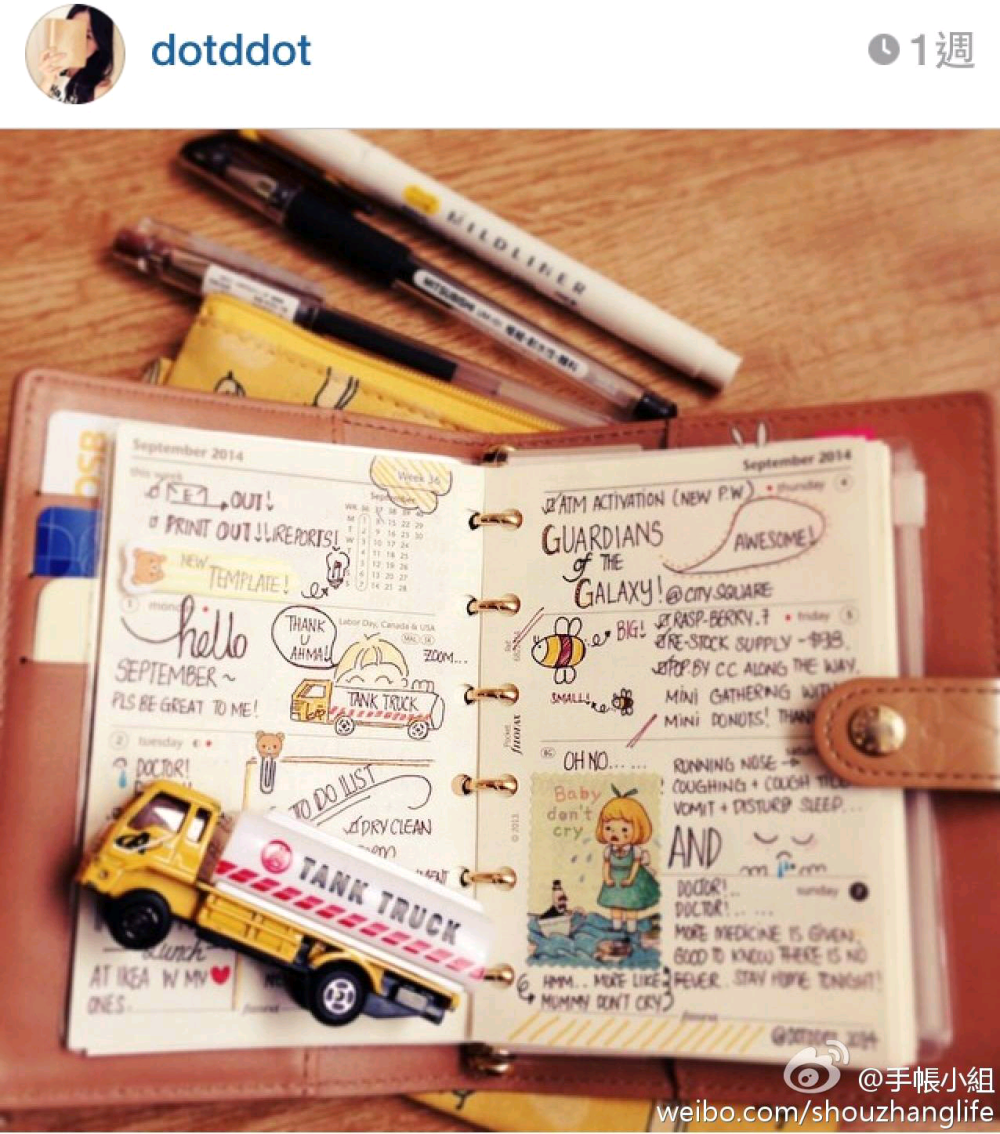 dotddot
1週
MILDLINER
MITSUBISHI
September 2014
this week
Week 36
OUT!
PRINT OUT!! (REPORTS!
NEW
TEMPLATE!
1
hello
SEPTEMBER~
PLS BE GREAT TO ME!
Labor Day, Canada & USA
THANK
U
AHMA!
ZOOM...
TANK TRUCK
2 tuesday
DOCTOR!
TO DO LIST
DRY CLEAN
TANK TRUCK
Lunch
AT IKEA W MY
ONES.
September 2014
thursday 4
ATM ACTIVATION (NEW P.W)
GUARDIANS
of THE
GALAXY! @ CITY SQUARE
AWESOME!
friday 5
RASP-BERRY.7
RE-STOCK SUPPLY -
POP BY CC ALONG THE WAY.
MINI GATHERING
MINI DONUTS!
BIG!
SMALL!
Pocket
filofax
© 2013
OH NO......
Baby
don't
cry
RUNNING NOSE
COUGHING + COUGH
VOMIT + DISTURB SLEEP...
AND
sunday 7
DOCTOR!..
DOCTOR!.....
MORE MEDICINE IS GIVEN,
GOOD TO KNOW THERE IS NO
FEVER. STAY HOME TONIGHT!
HMM.. MORE LIKE
MUMMY DON'T CRY
@DOTDDOT 2014
@手帳小組
weibo.com/shouzhanglife